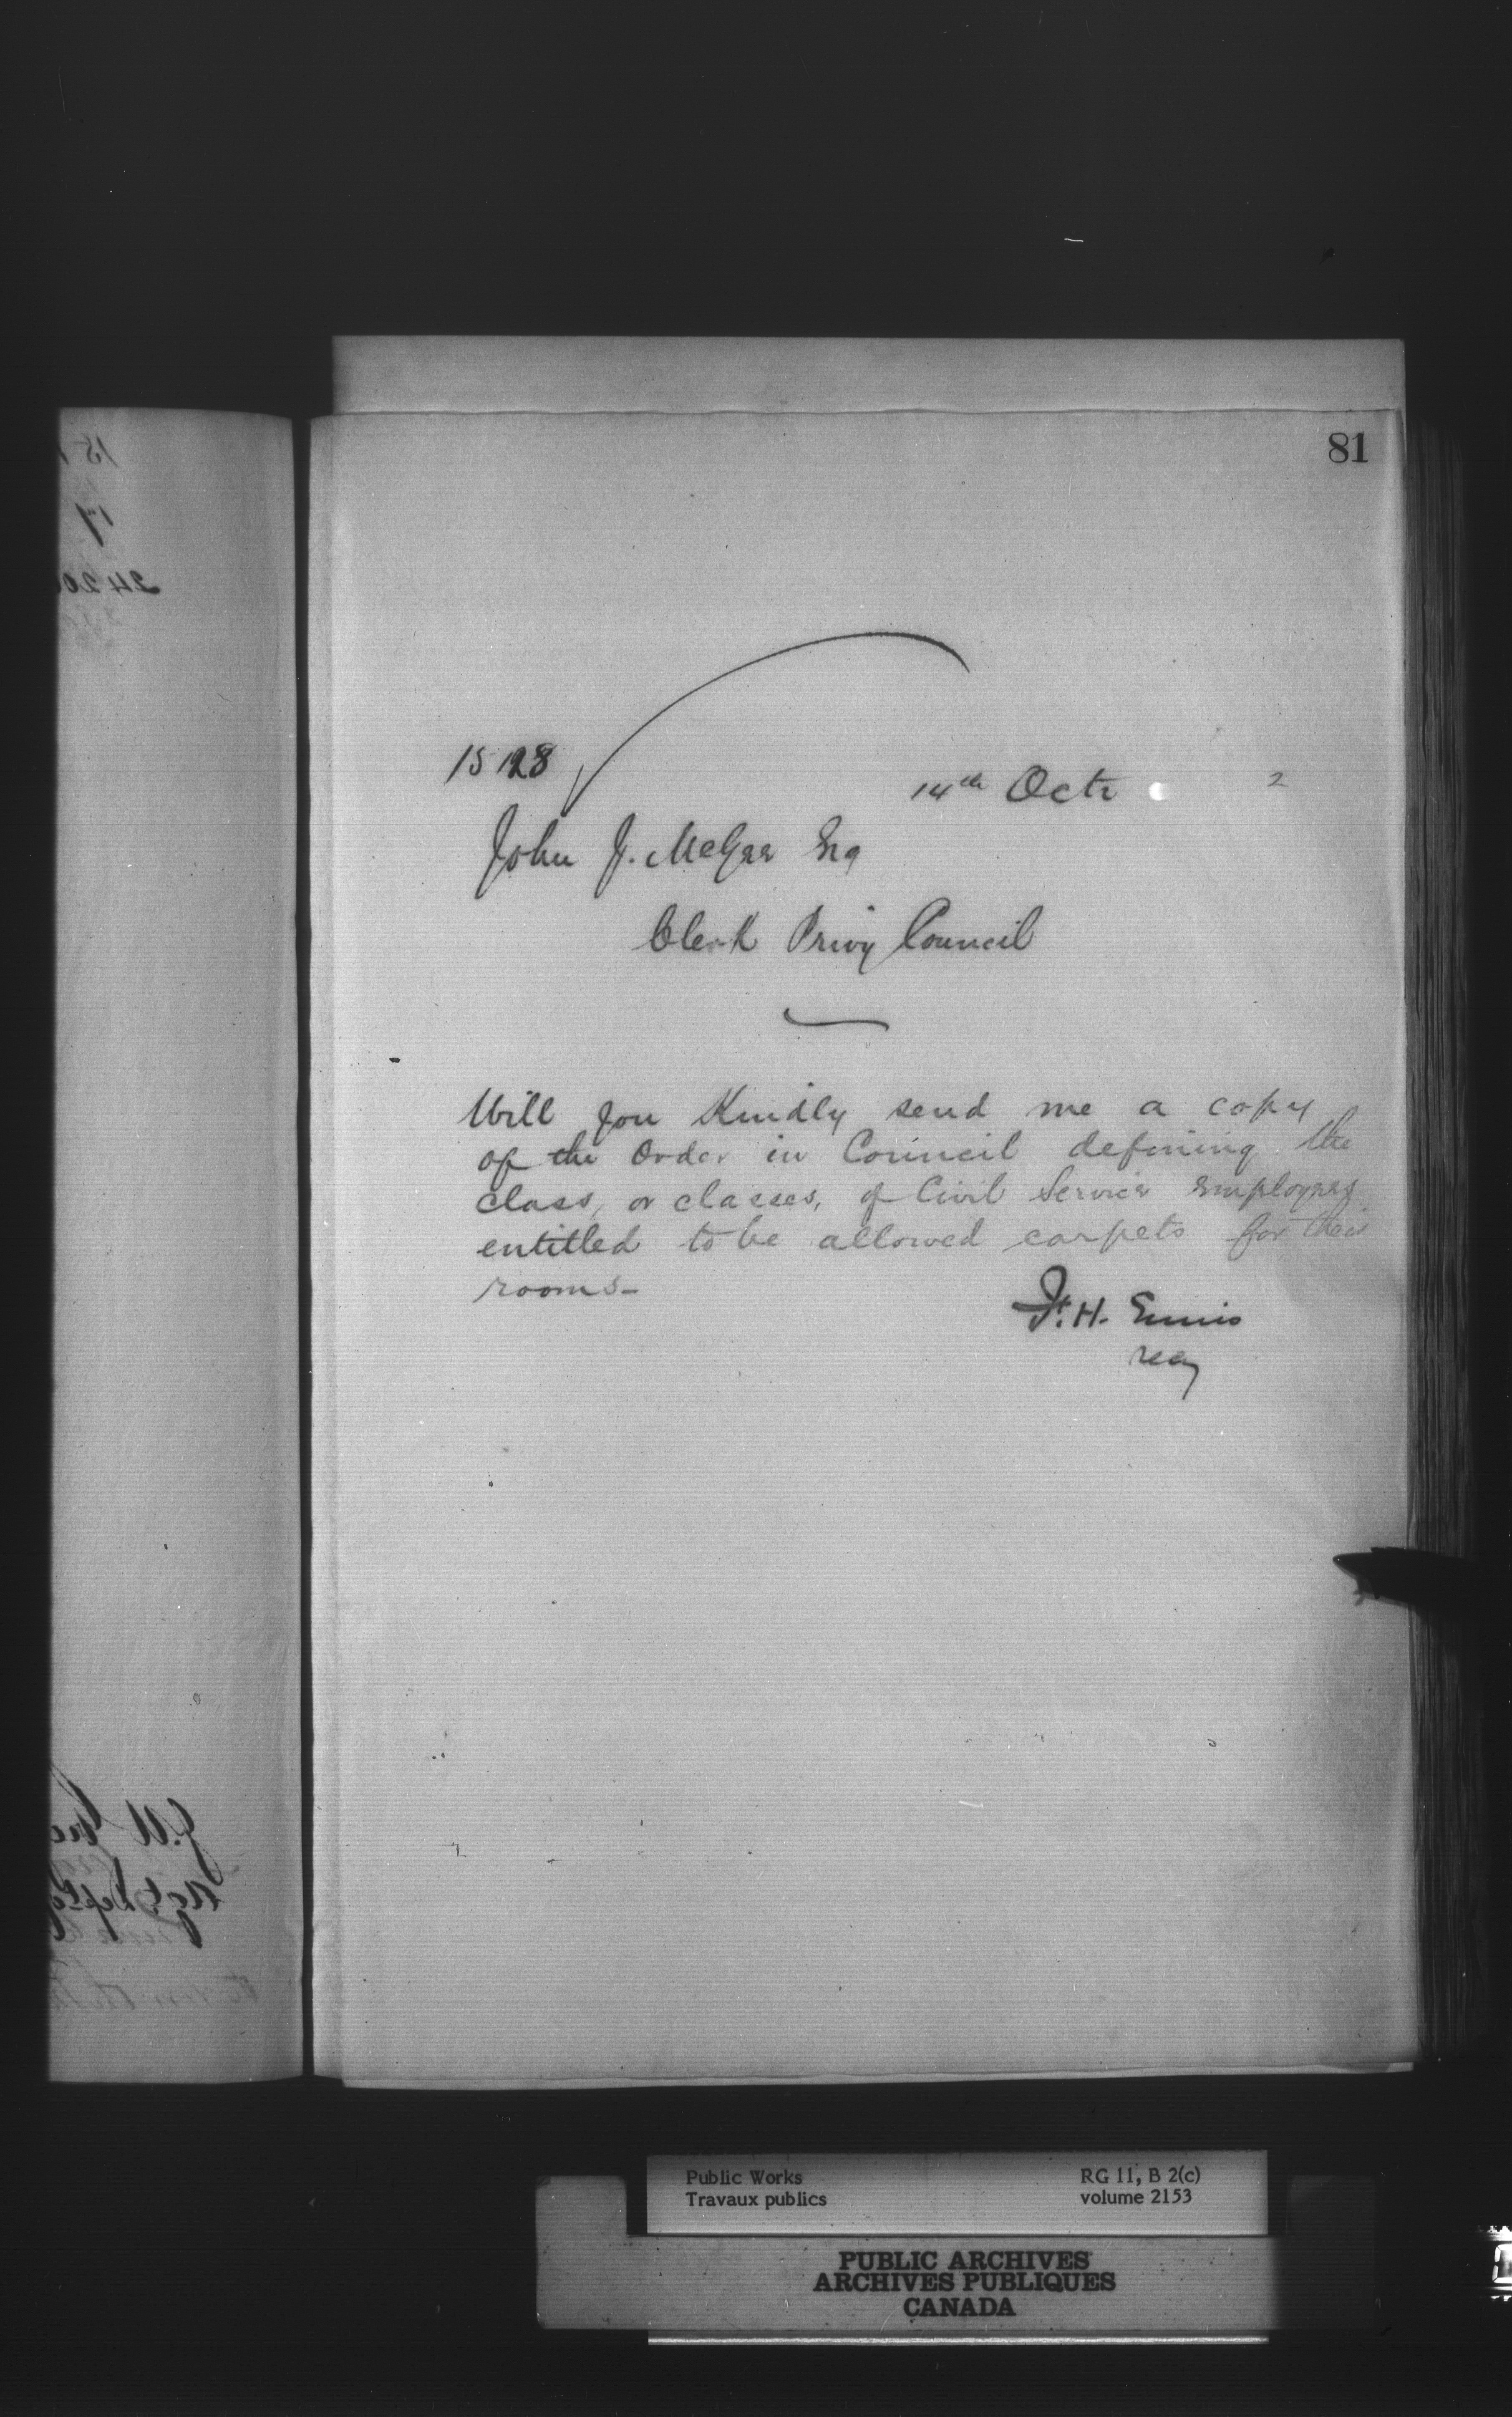 81
15128
14th Octr 2
John J. McGee Esq
Clerk Privy Council
Will you Kindly send me a copy
of the Order in Council defining the
class, or classes, of Civil Service Employees
entitled to be allowed carpets for their
rooms-
F. H. Ennis
Secy
Public Works
Travaux publics
RG 11, B 2(c)
volume 2153
PUBLIC ARCHIVES
ARCHIVES PUBLIQUES
CANADA